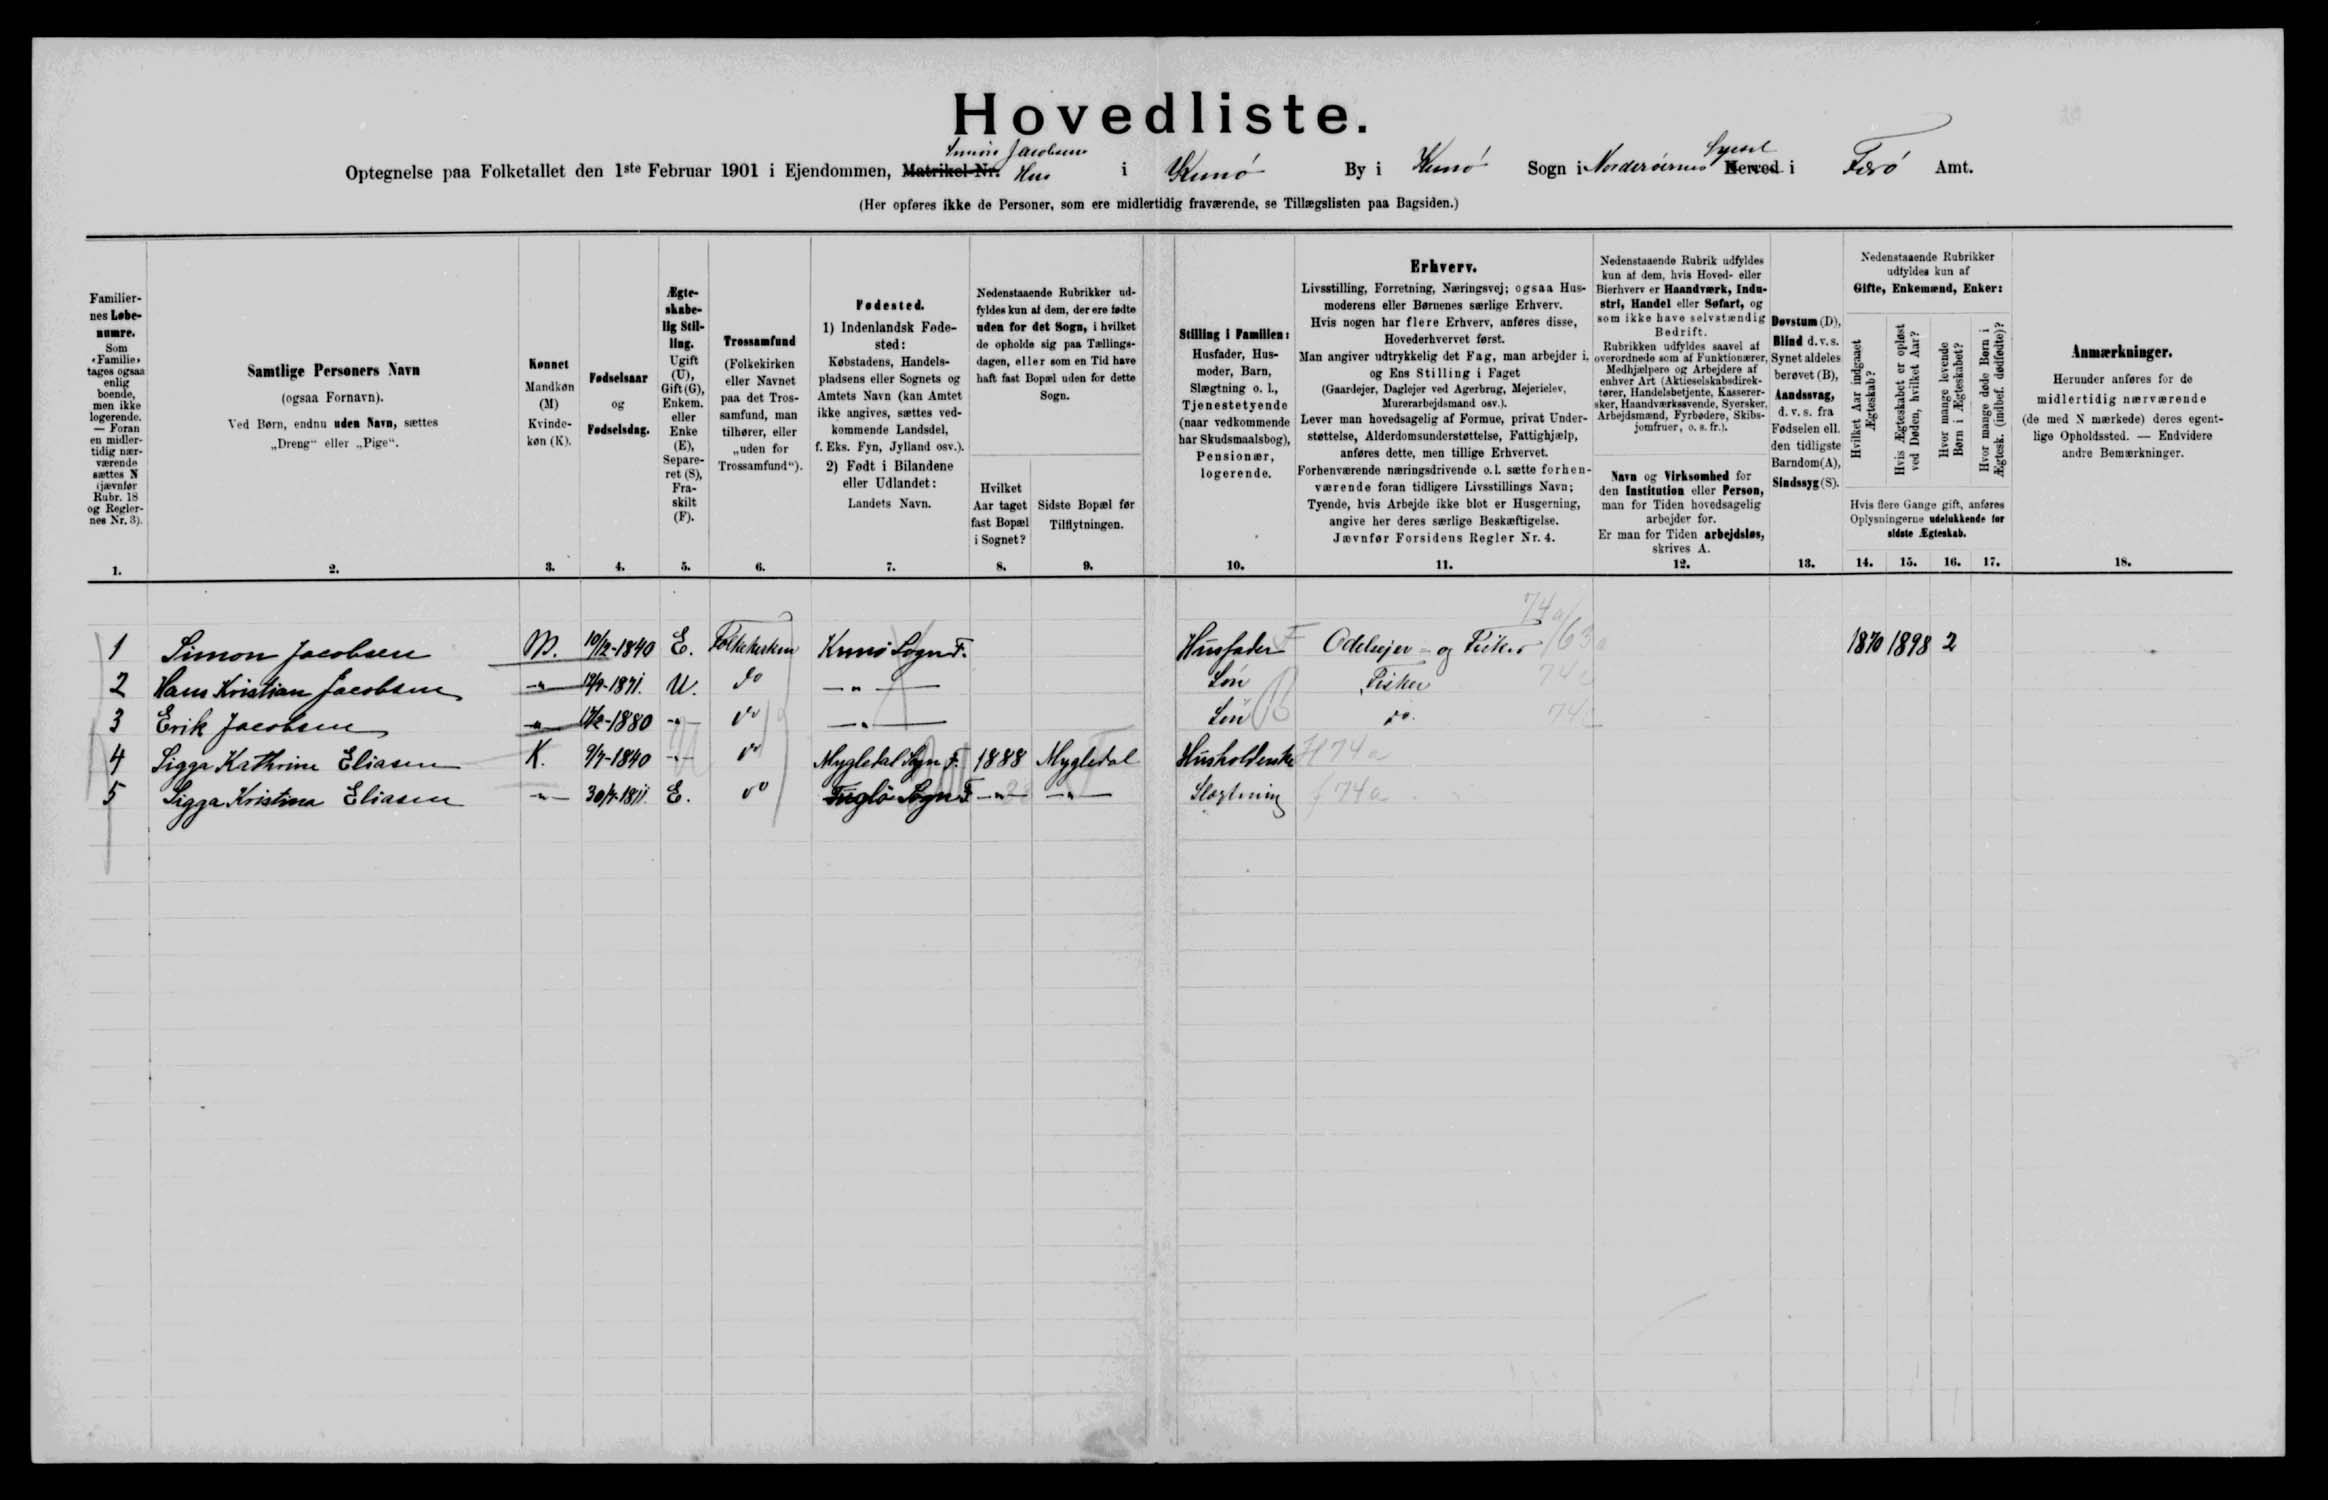 Hovedliste.
Simon Jacobsens Syssel
Optegnelse paa Folketallet den 1ste Februar 1901 i Ejendommen, Matrikel-Nr. Hus i Kunø By i Kunø Sogn i Norderøernes Herred i Færø Amt.
(Her opføres ikke de Personer, som ere midlertidig fraværende, se Tillægslisten paa Bagsiden.)
Familiernes Løbenumre.
Som «Familie» tages ogsaa enlig boende, men ikke logerende. — Foran en midlertidig nærværende sættes N (jævnfør Rubr. 18 og Reglernes Nr. 3).
Samtlige Personers Navn
(ogsaa Fornavn).
Ved Børn, endnu uden Navn, sættes
„Dreng" eller „Pige".
Kønnet
Mandkøn (M)
Kvindekøn (K).
Fødselsaar
og
Fødselsdag.
Ægteskabelig Stilling.
Ugift (U), Gift (G), Enkem. eller Enke (E), Separeret (S), Fraskilt (F).
Trossamfund
(Folkekirken eller Navnet paa det Trossamfund, man tilhører, eller „uden for Trossamfund").
Fødested.
1) Indenlandsk Fødested:
Købstadens, Handelspladsens eller Sognets og Amtets Navn (kan Amtet ikke angives, sættes vedkommende Landsdel, f. Eks. Fyn, Jylland osv.).
2) Født i Bilandene eller Udlandet:
Landets Navn.
Nedenstaaende Rubrikker udfyldes kun af dem, der ere fødte uden for det Sogn, i hvilket de opholde sig paa Tællingsdagen, eller som en Tid have haft fast Bopæl uden for dette Sogn.
Hvilket Aar taget fast Bopæl i Sognet?
Sidste Bopæl før Tilflytningen.
Stilling i Familien:
Husfader, Husmoder, Barn, Slægtning o. l., Tjenestetyende (naar vedkommende har Skudsmaalsbog), Pensionær, logerende.
Erhverv.
Livsstilling, Forretning, Næringsvej; ogsaa Husmoderens eller Børnenes særlige Erhverv.
Hvis nogen har flere Erhverv, anføres disse, Hovederhvervet først.
Man angiver udtrykkelig det Fag, man arbejder i, og Ens Stilling i Faget
(Gaardejer, Daglejer ved Agerbrug, Mejerielev, Murerarbejdsmand osv.).
Lever man hovedsagelig af Formue, privat Understøttelse, Alderdomsunderstøttelse, Fattighjælp, anføres dette, men tillige Erhvervet.
Forhenværende næringsdrivende o. l. sætte forhenværende foran tidligere Livsstillings Navn;
Tyende, hvis Arbejde ikke blot er Husgerning, angive her deres særlige Beskæftigelse.
Jævnfør Forsidens Regler Nr. 4.
Nedenstaaende Rubrik udfyldes kun af dem, hvis Hoved- eller Bierhverv er Haandværk, Industri, Handel eller Søfart, og som ikke have selvstændig Bedrift.
Rubrikken udfyldes saavel af overordnede som af Funktionærer, Medhjælpere og Arbejdere af enhver Art (Aktieselskabsdirektører, Handelsbetjente, Kassererersker, Haandværkssvende, Syersker, Arbejdsmænd, Fyrbødere, Skibsjomfruer, o. s. fr.).
Navn og Virksomhed for den Institution eller Person, man for Tiden hovedsagelig arbejder for.
Er man for Tiden arbejdsløs, skrives A.
Døvstum (D), Blind d. v. s. Synet aldeles berøvet (B), Aandssvag, d. v. s. fra Fødselen ell. den tidligste Barndom (A), Sindssyg (S).
Nedenstaaende Rubrikker udfyldes kun af
Gifte, Enkemænd, Enker:
Hvilket Aar indgaaet Ægteskab?
Hvis Ægteskabet er opløst ved Døden, hvilket Aar?
Hvor mange levende Børn i Ægteskabet?
Hvor mange døde Børn i Ægtesk. (indbef. dødfødte)?
Hvis flere Gange gift, anføres Oplysningerne udelukkende for sidste Ægteskab.
Anmærkninger.
Herunder anføres for de midlertidig nærværende (de med N mærkede) deres egentlige Opholdssted. — Endvidere andre Bemærkninger.
1. 2. 3. 4. 5. 6. 7. 8. 9. 10. 11. 12. 13. 14. 15. 16. 17. 18.
74a
1 Simon Jacobsen M. 10/2-1840 E. Folkekirken Kunø Sogn F. Husfader F Odelsejer og Fisker 63 1870 1898 2
2 Hans Kristian Jacobsen -"- -1871. U. do -"- Søn Fisker 74
3 Erik Jacobsen -"- -1880 -"- do -"- Søn do. 74
4 Sigga Kathrine Eliasen K. 9/7-1840 -"- do Mygledal Sogn F. 1888 Mygledal Husholderske H 74a
5 Sigga Kristina Eliasen -"- 30/7-1811. E. do Fuglø Sogn F -"- -"- Slægtning f 74a